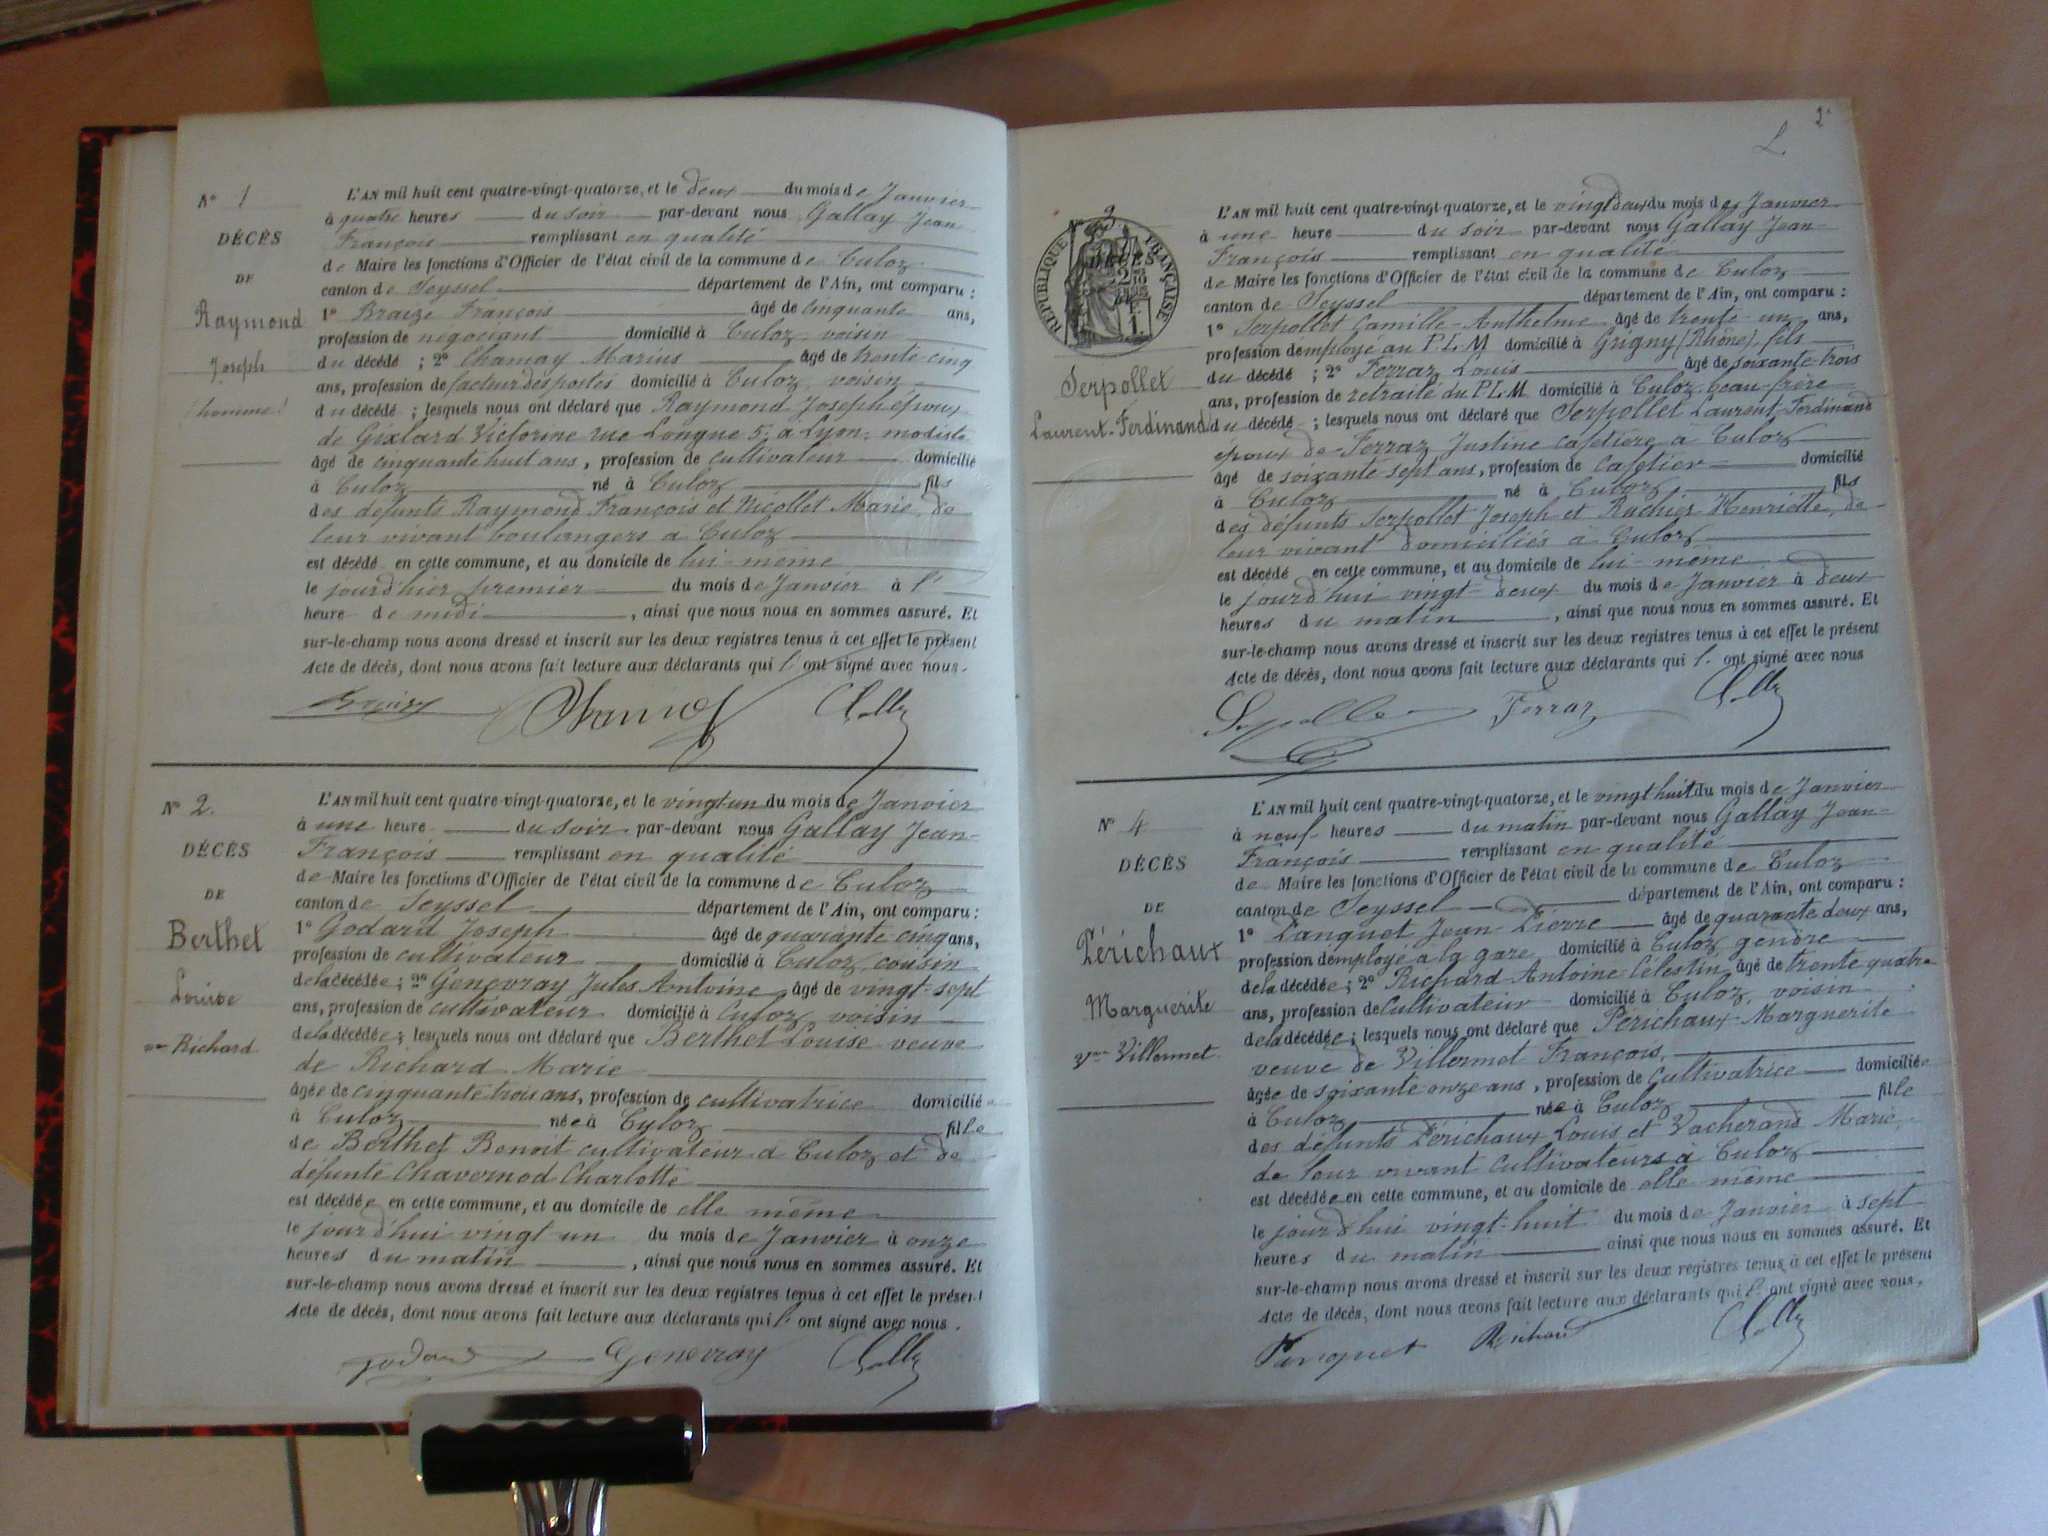 N° 1
DÉCÈS
DE
Raymond
Joseph
(homme)
L'AN mil huit cent quatre-vingt-quatorze, et le deux du mois de Janvier
à quatre heures du soir par-devant nous Gallay Jean
François remplissant en qualité
de Maire les fonctions d'Officier de l'état civil de la commune de Culoz
canton de Seyssel département de l'Ain, ont comparu :
1° Braize François âgé de cinquante ans,
profession de négociant domicilié à Culoz, voisin
du décédé ; 2° Chamay Marius âgé de trente-cinq
ans, profession de facteur des postes domicilié à Culoz, voisin
du décédé ; lesquels nous ont déclaré que Raymond Joseph époux
de Victorine rue Longue 5, à Lyon, modiste
âgé de cinquante huit ans, profession de cultivateur domicilié
à Culoz né à Culoz fils
des défunts Raymond François et Nicollet Marie, de
leur vivant boulangers à Culoz
est décédé en cette commune, et au domicile de lui-même
le jourd'hier premier du mois de Janvier à l'
heure de midi, ainsi que nous nous en sommes assuré. Et
sur-le-champ nous avons dressé et inscrit sur les deux registres tenus à cet effet le présent
Acte de décès, dont nous avons fait lecture aux déclarants qui l' ont signé avec nous.
N° 2.
DÉCÈS
DE
Berthet
Louise
Richard
L'AN mil huit cent quatre-vingt-quatorze, et le vingt-un du mois de Janvier
à une heure du soir par-devant nous Gallay Jean-
François remplissant en qualité
de Maire les fonctions d'Officier de l'état civil de la commune de Culoz
canton de Seyssel département de l'Ain, ont comparu :
1° Godard Joseph âgé de quarante-cinq ans,
profession de cultivateur domicilié à Culoz, cousin
de la décédée ; 2° Genevray Jules Antoine âgé de vingt-sept
ans, profession de cultivateur domicilié à Culoz, voisin
de la décédée ; lesquels nous ont déclaré que Berthet Louise veuve
de Richard Marie
âgée de cinquante trois ans, profession de cultivatrice domiciliée
à Culoz née à Culoz fille
de Berthet Benoit cultivateur à Culoz et de
défunte Chavernod Charlotte
est décédée en cette commune, et au domicile de elle même
le jourd'hui vingt un du mois de Janvier à onze
heures du matin, ainsi que nous nous en sommes assuré. Et
sur-le-champ nous avons dressé et inscrit sur les deux registres tenus à cet effet le présent
Acte de décès, dont nous avons fait lecture aux déclarants qui l' ont signé avec nous.
Godard Genevray
2
N° 3
RÉPUBLIQUE FRANÇAISE
DÉCÈS
Serpollet
Laurent-Ferdinand
L'AN mil huit cent quatre-vingt-quatorze, et le vingt deux du mois de Janvier
à une heure du soir par-devant nous Gallay Jean-
François remplissant en qualité
de Maire les fonctions d'Officier de l'état civil de la commune de Culoz
canton de Seyssel département de l'Ain, ont comparu :
1° Serpollet Camille-Anthelme âgé de trente-un ans,
profession d'employé au P.L.M domicilié à Grigny (Rhône), fils
du décédé ; 2° Ferraz Louis âgé de soixante-trois
ans, profession de retraité du P.L.M domicilié à Culoz, beau-frère
du décédé ; lesquels nous ont déclaré que Serpollet Laurent-Ferdinand
époux de Ferraz Justine cafetière à Culoz
âgé de soixante sept ans, profession de cafetier domicilié
à Culoz né à Culoz fils
des défunts Serpollet Joseph et Rachier Henriette, de
leur vivant domiciliés à Culoz
est décédé en cette commune, et au domicile de lui-même
le jourd'hui vingt-deux du mois de Janvier à deux
heures du matin, ainsi que nous nous en sommes assuré. Et
sur-le-champ nous avons dressé et inscrit sur les deux registres tenus à cet effet le présent
Acte de décès, dont nous avons fait lecture aux déclarants qui l' ont signé avec nous
Ferraz
N° 4
DÉCÈS
DE
Périchaux
Marguerite
Vve Villermet
L'AN mil huit cent quatre-vingt-quatorze, et le vingt huit du mois de Janvier
à neuf heures du matin par-devant nous Gallay Jean-
François remplissant en qualité
de Maire les fonctions d'Officier de l'état civil de la commune de Culoz
canton de Seyssel département de l'Ain, ont comparu :
1° Panquet Jean-Pierre âgé de quarante deux ans,
profession d'employé à la gare domicilié à Culoz, gendre
de la décédée ; 2° Richard Antoine Célestin âgé de trente quatre
ans, profession de cultivateur domicilié à Culoz, voisin
de la décédée ; lesquels nous ont déclaré que Périchaux Marguerite
veuve de Villermet François,
âgée de soixante onze ans, profession de cultivatrice domiciliée
à Culoz née à Culoz fille
des défunts Périchaux Louis et Vacherand Marie,
de leur vivant cultivateurs à Culoz
est décédée en cette commune, et au domicile de elle même
le jourd'hui vingt-huit du mois de Janvier à sept
heures du matin ainsi que nous nous en sommes assuré. Et
sur-le-champ nous avons dressé et inscrit sur les deux registres tenus à cet effet le présent
Acte de décès, dont nous avons fait lecture aux déclarants qui l' ont signé avec nous.
Panquet Richard